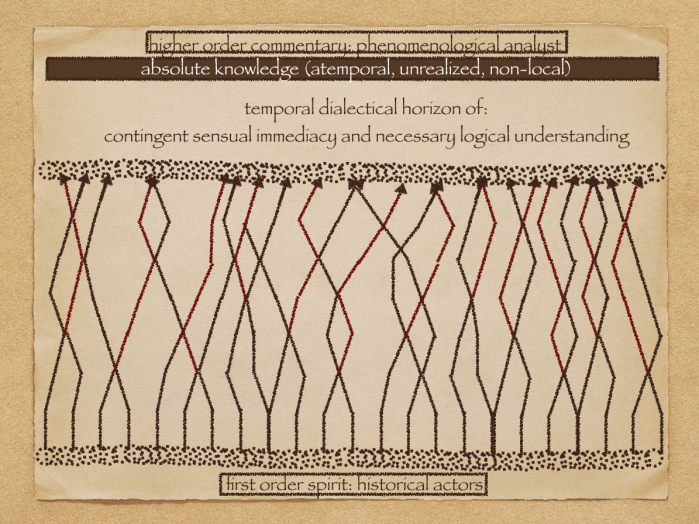 higher order commentary: phenomenological analyst
absolute knowledge (atemporal, unrealized, non-local)
temporal dialectical horizon of:
contingent sensual immediacy and necessary logical understanding
first order spirit: historical actors